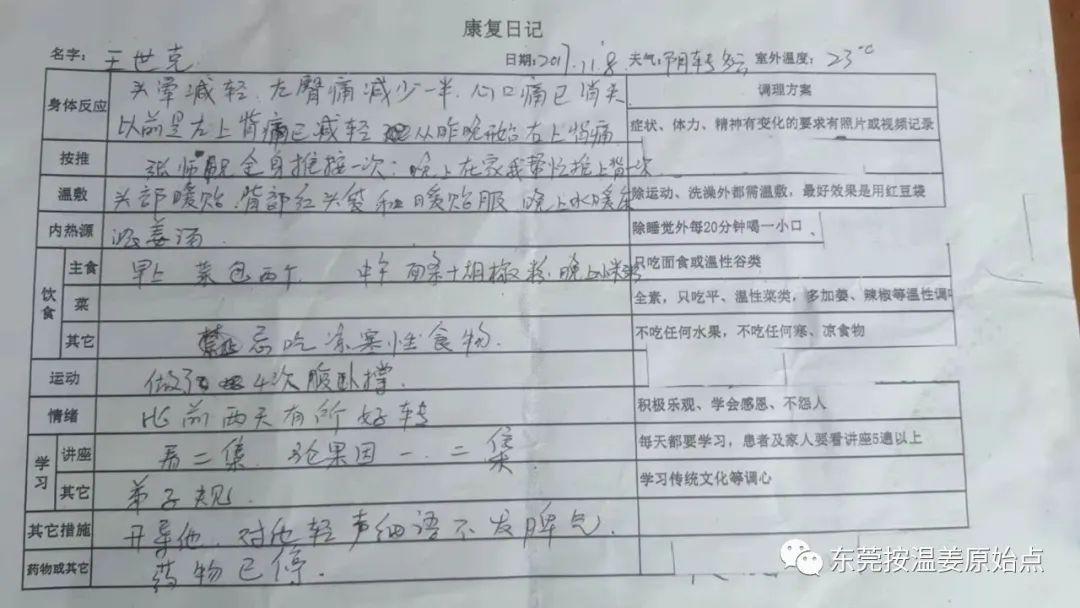 康复日记
名字: 王世克 日期:2017.11.8 天气:阴转多云 室外温度: 23℃
身体反应 头晕减轻.左臀痛减少一半.心口痛已消失 调理方案
以前是左上背痛已减轻 从昨晚开始右上背痛 症状、体力、精神有变化的要求有照片或视频记录
按推 张师 全身推按一次;晚上在家我帮忙推上背一次
温敷 头部暖贴.背部红头袋和暖贴服 晚上水暖 除运动、洗澡外都需温敷,最好效果是用红豆袋
内热源 姜汤. 除睡觉外每20分钟喝一小口、
饮食 主食 早上 菜包两个 中午 面条+胡椒粉.晚上小米粥 只吃面食或温性谷类
菜 全素,只吃平、温性菜类,多加姜、辣椒等温性调
其它 忌吃凉寒性食物. 不吃任何水果,不吃任何寒、凉食物
运动 做了 4次腹卧撑.
情绪 比前两天有所好转 积极乐观、学会感恩、不怨人
学习 讲座 第二集. 论果因一.二集. 每天都要学习,患者及家人要看讲座5遍以上
其它 弟子规. 学习传统文化等调心
其它措施 开导他.对他轻声细语不发脾气.
药物或其它 药物已停.
东莞按温姜原始点